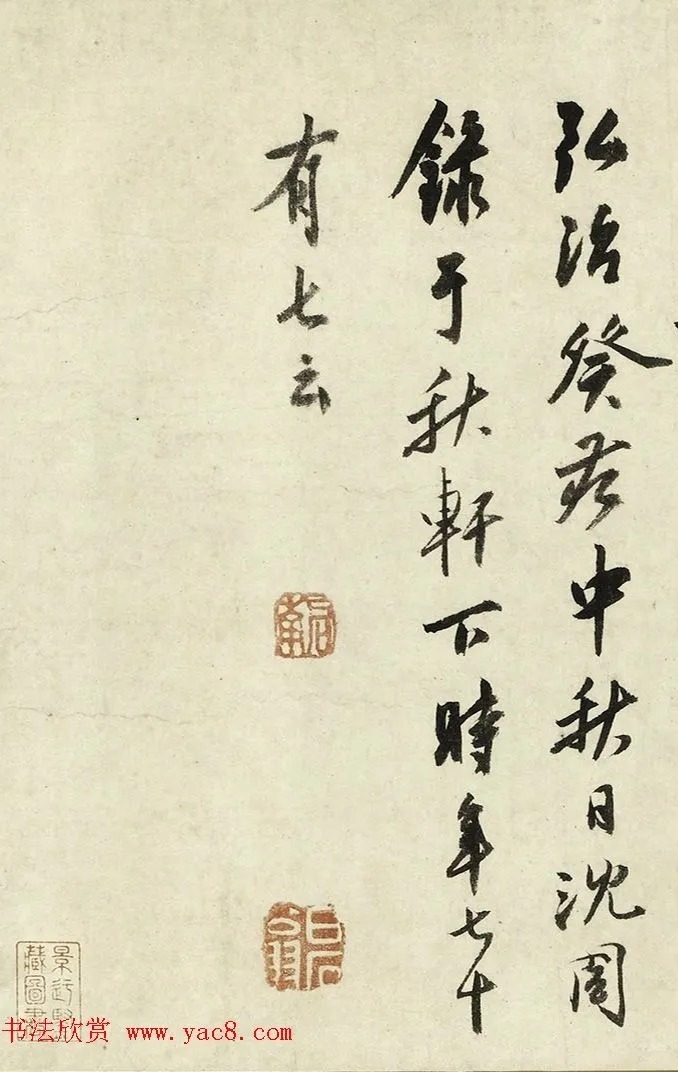 弘治癸亥中秋日沈周
錄于秋軒下時年七十
有七云
啓南
书法欣赏 www.yac8.com